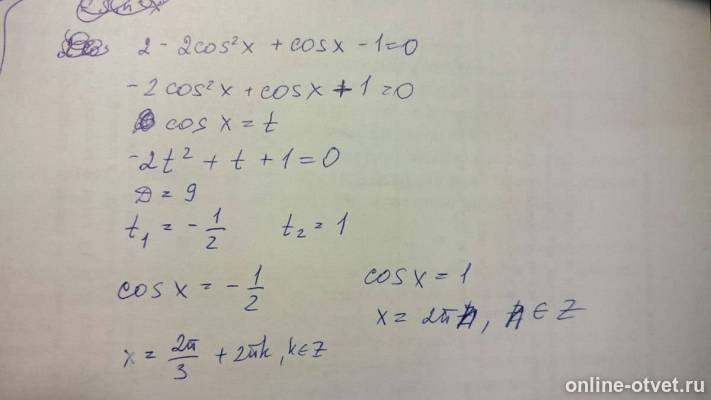 2 - 2cos²x + cosx - 1 = 0
-2cos²x + cosx + 1 = 0
cos x = t
-2t² + t + 1 = 0
D = 9
t₁ = -1/2    t₂ = 1
cos x = -1/2    cos x = 1
x = 2π/3 + 2πk, k∈Z    x = 2πn, n ∈ Z
online-otvet.ru